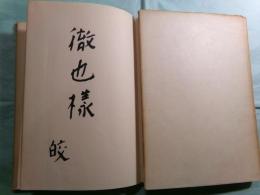 徹也様
皎